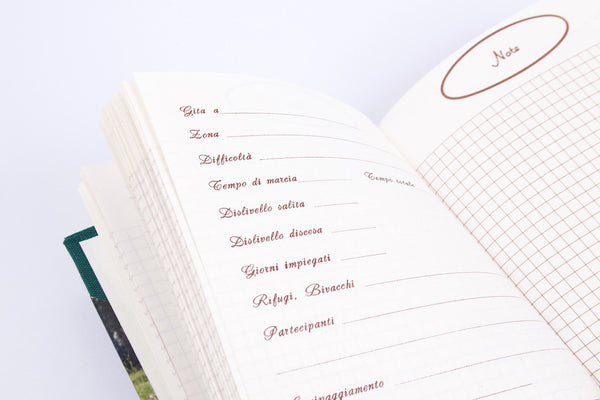 Gita a
Zona
Difficoltà
Tempo di marcia Tempo totale
Dislivello salita
Dislivello discesa
Giorni impiegati
Rifugi, Bivacchi
Partecipanti
Equipaggiamento
Note